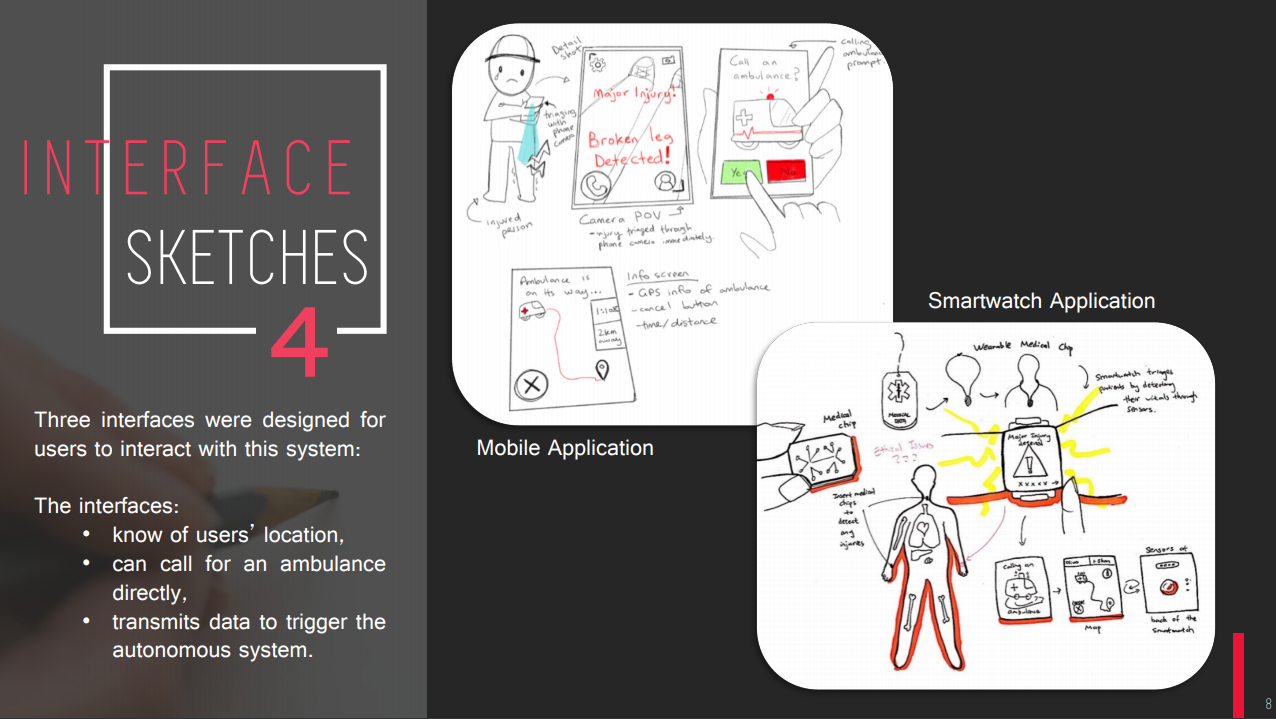 INTERFACE
SKETCHES
4
Three interfaces were designed for
users to interact with this system:
The interfaces:
• know of users’ location,
• can call for an ambulance
directly,
• transmits data to trigger the
autonomous system.
Detail
shot
triaging
with
phone
camera
injured
person
Major Injury!
Broken leg
Detected!
Camera POV
- injury triaged through
phone camera immediately.
calling
ambulance
prompt.
Call an
ambulance?
Yes
No
Ambulance is
on its way...
2km
away
Info screen
- GPS info of ambulance
- cancel button
- time/distance
Mobile Application
Smartwatch Application
Wearable Medical Chip
Smartwatch triages
patients by detecting
their vitals through
sensors.
Medical
chip
Ethical Issues
???
Major Injury
xxxxx
Insert medical
chips
to
detect
any
injuries
Calling an
ambulance
Map
Sensors at
back of the
Smartwatch
8